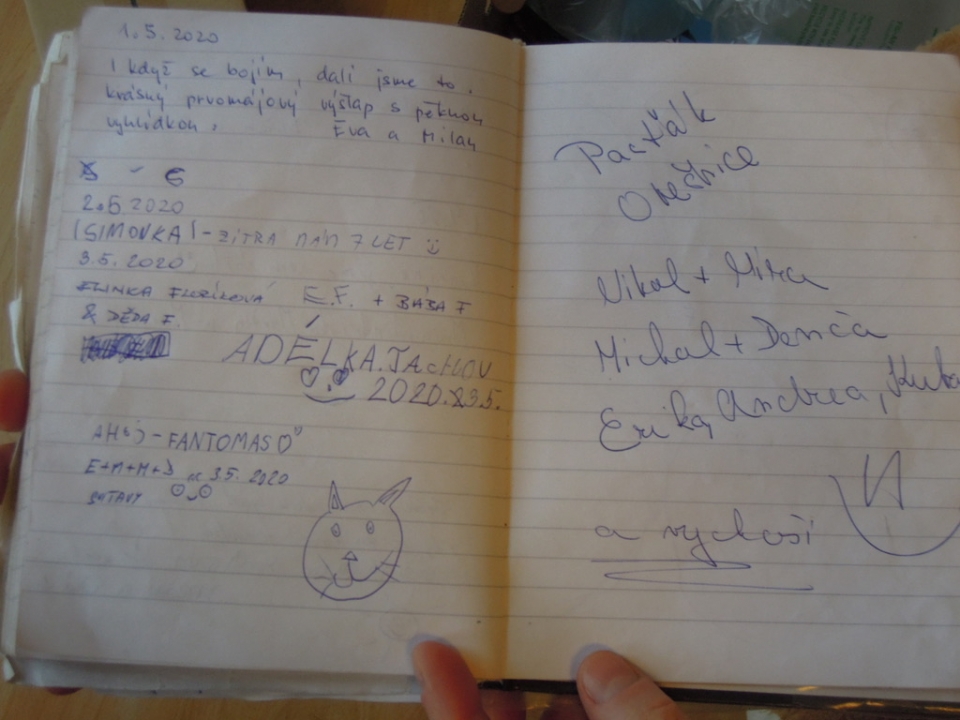 1.5.2020
I když se bojím, dali jsme to.
krásný prvomájový výšlap s pěknou
vyhlídkou. Eva a Milan
2.5 2020
(SIMOVKA) - ZÍTRA MÁM 7 LET
3.5.2020
E.F. + BÁBA F
& DĚDA F.
ADÉLKA. TACHOV
2020. 3.5.
AHOJ - FANTOMAS
E+M+M+J 3.5. 2020
Pacťák
Ořečnice
Nikol + Míra
Michal + Danča
Erika, Andrea, Kuba
a